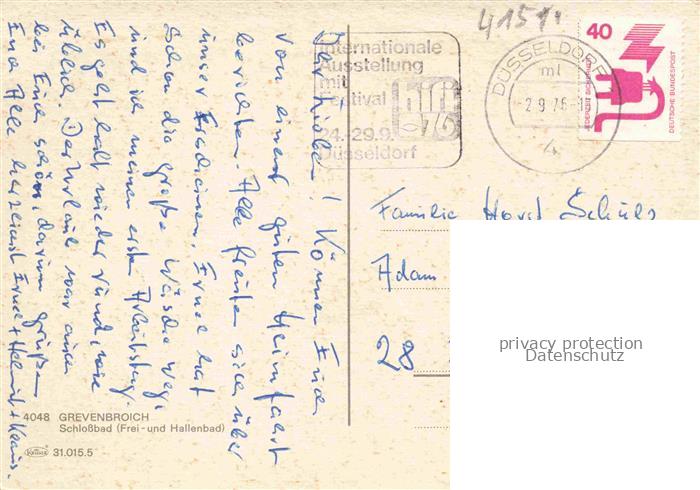 4151
Internationale
Ausstellung
mit
Festival
hifi
76
24.-29.9.
Düsseldorf
DÜSSELDORF
ml
-2.9.76-
4
40
JEDERZEIT SICHERHEIT
DEUTSCHE BUNDESPOST
Ihr Lieben! Können Euch
von einer guten Heimfahrt
berichten. Alle freuten sich über
unser Erscheinen. Erne hat
schon die große Wäsche weg,
und ich meinen ersten Arbeitstag.
Es geht halt wieder rund, wie
üblich. Der Urlaub war auch
bei Euch schön, darum grüßen
Euch Alle herzlichst Erne + Helmut + Klaus.
Familie Horst Schulz
Adam
28
privacy protection
Datenschutz
4048 GREVENBROICH
Schloßbad (Frei- und Hallenbad)
Krüger 31.015.5